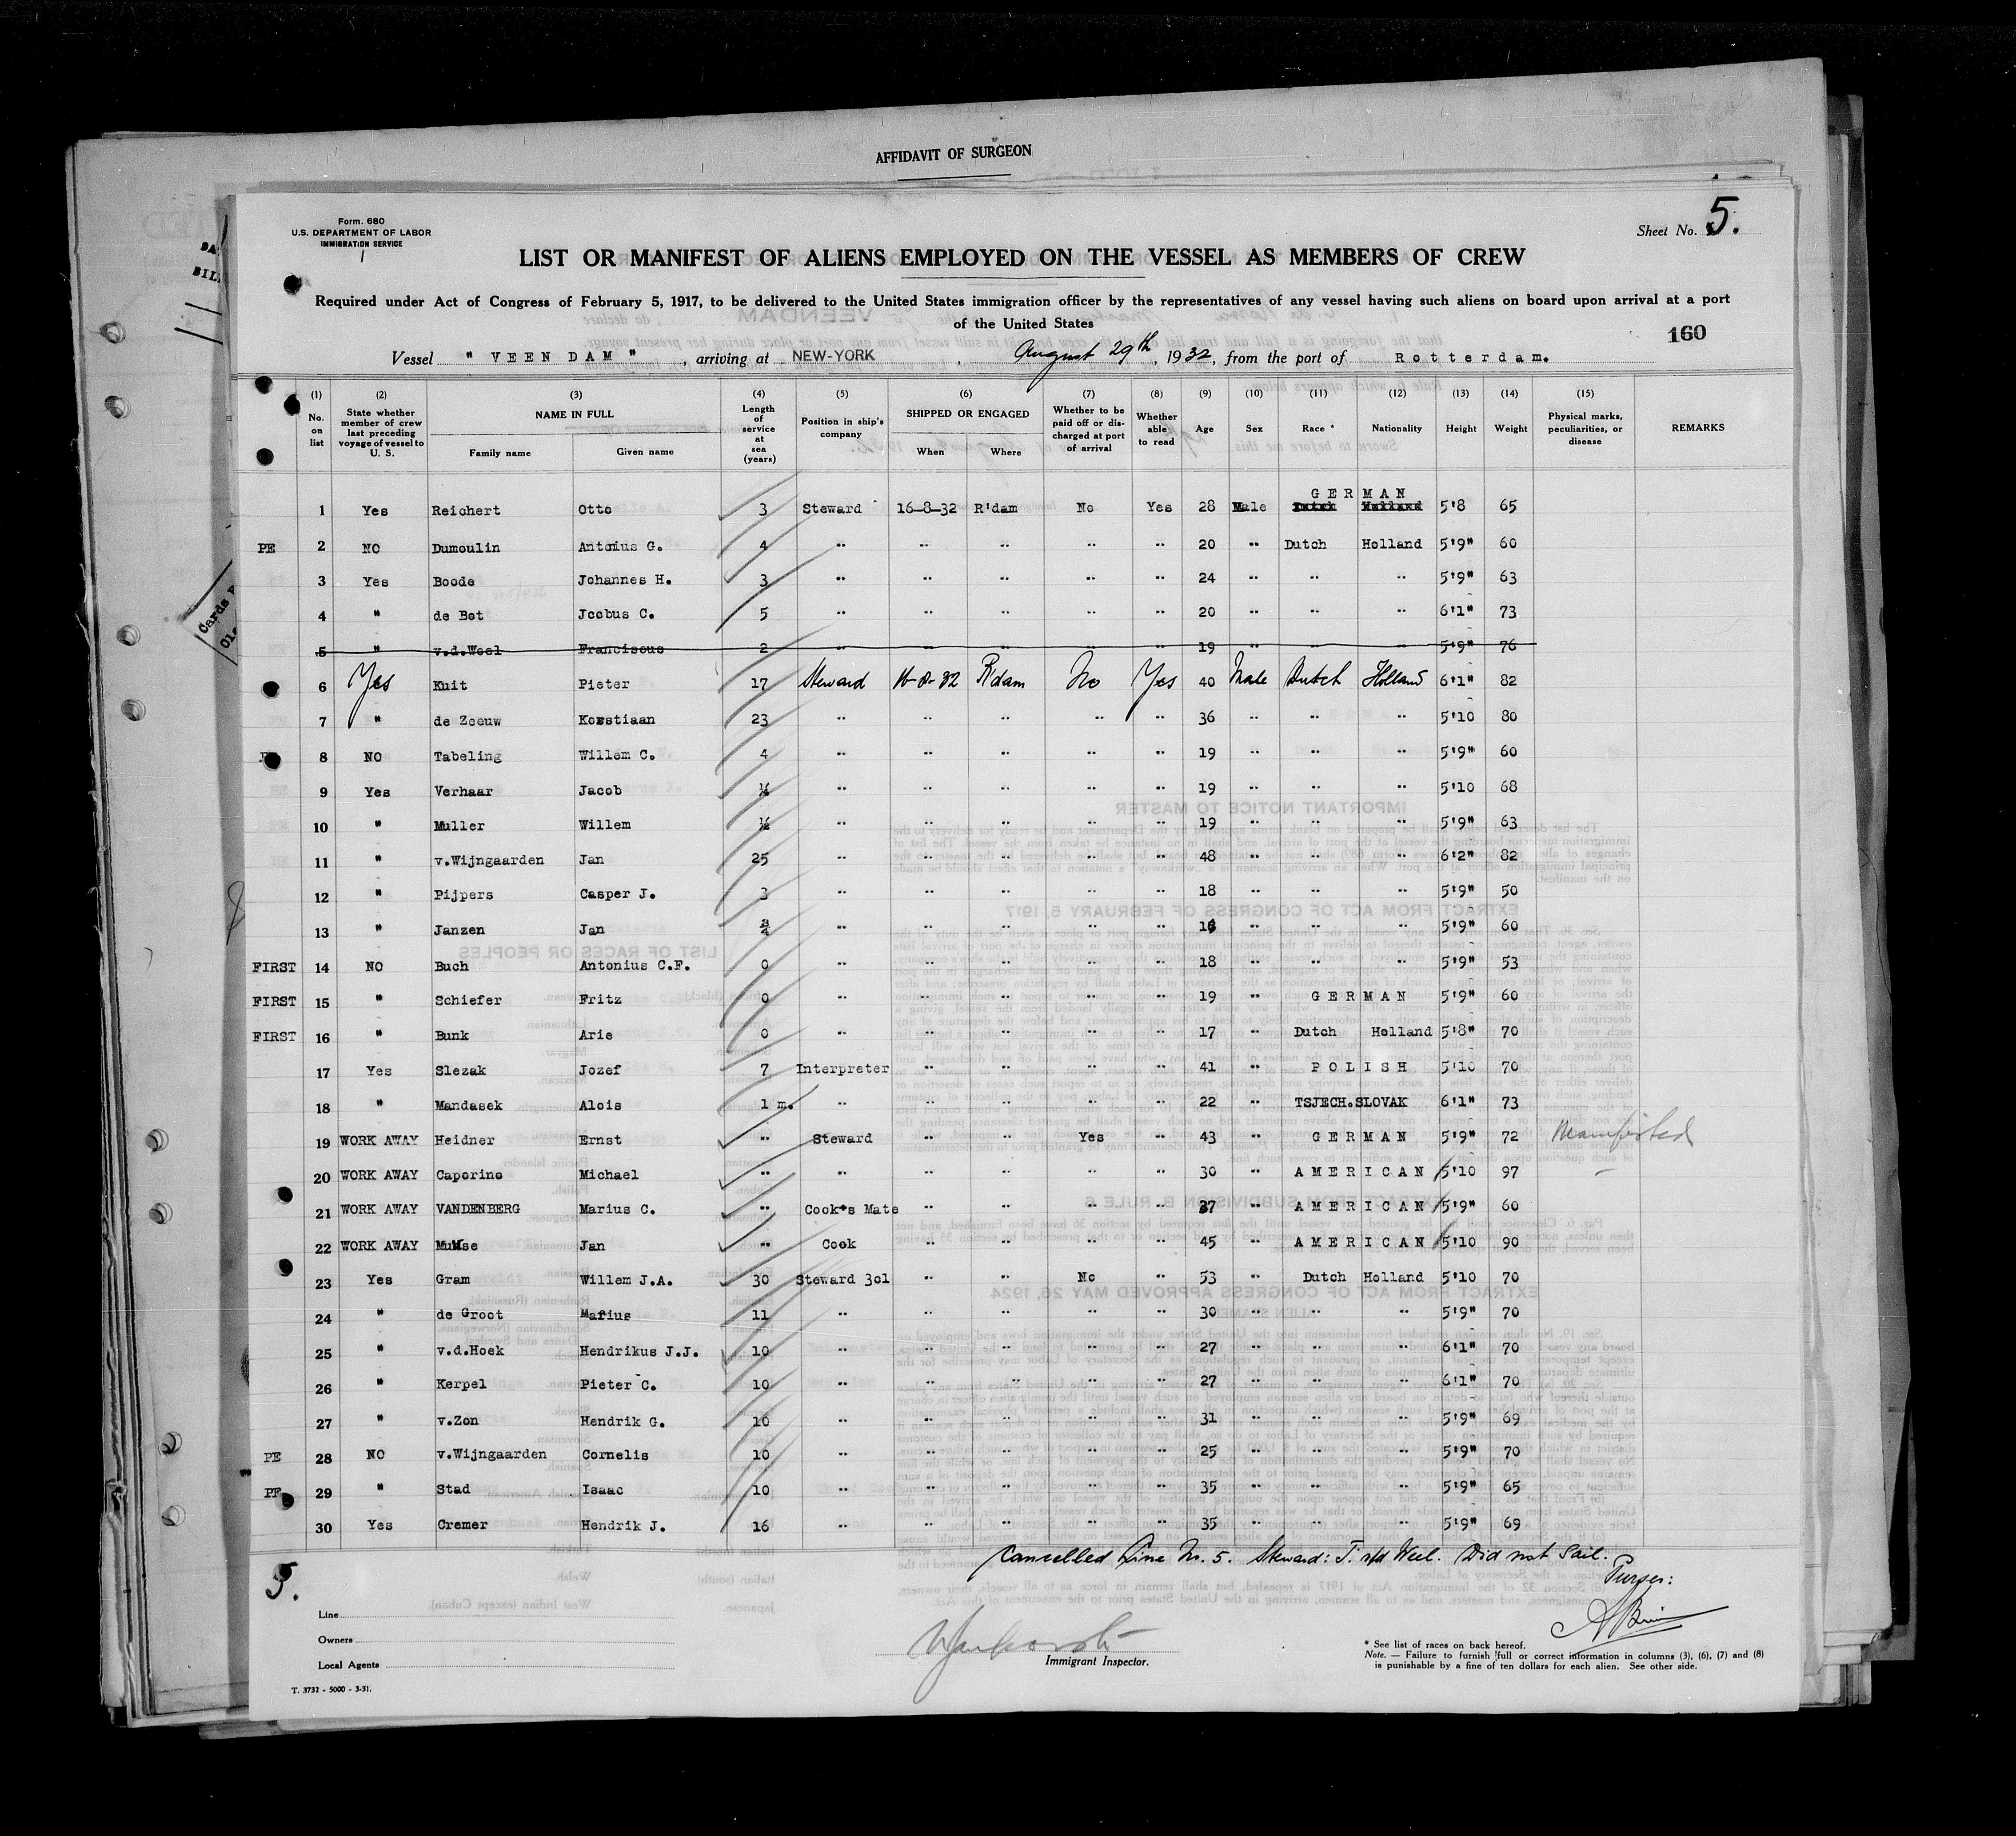 AFFIDAVIT OF SURGEON
Form. 680
U.S. DEPARTMENT OF LABOR
IMMIGRATION SERVICE
Sheet No. 5.
LIST OR MANIFEST OF ALIENS EMPLOYED ON THE VESSEL AS MEMBERS OF CREW
Required under Act of Congress of February 5, 1917, to be delivered to the United States immigration officer by the representatives of any vessel having such aliens on board upon arrival at a port
of the United States
160
Vessel " VEENDAM ", arriving at NEW-YORK, August 29th, 1932, from the port of Rotterdam.
(1) No. on list (2) State whether member of crew last preceding voyage of vessel to U. S. (3) NAME IN FULL Family name Given name (4) Length of service at sea (years) (5) Position in ship's company (6) SHIPPED OR ENGAGED When Where (7) Whether to be paid off or discharged at port of arrival (8) Whether able to read (9) Age (10) Sex (11) Race * (12) Nationality (13) Height (14) Weight (15) Physical marks, peculiarities, or disease REMARKS
1 Yes Reichert Otto 3 Steward 16-8-32 R'dam No Yes 28 Male GERMAN 5'8 65
PE 2 NO Dumoulin Antonius G. 4 " " " " " 20 " Dutch Holland 5'9" 60
3 Yes Boode Johannes H. 3 " " " " " 24 " " " 5'9" 63
4 " de Bot Jcobus C. 5 " " " " " 20 " " " 6'1" 73
5 " v.d.Weel Franciscus 2 " " " " " 19 " " " 5'9" 76
6 Yes Kuit Pieter 17 Steward 16-8-32 R'dam No Yes 40 Male Dutch Holland 6'1" 82
7 " de Zeeuw Korstiaan 23 " " " " " 36 " " " 5'10 80
8 NO Tabeling Willem C. 4 " " " " " 19 " " " 5'9" 60
9 Yes Verhaar Jacob " " " " " 19 " " " 5'10 68
10 " Muller Willem ½ " " " " " 19 " " " 5'9" 63
11 " v.Wijngaarden Jan 25 " " " " " 48 " " " 6'2" 82
12 " Pijpers Casper J. 3 " " " " " 18 " " " 5'9" 50
13 " Janzen Jan " " " " " " " " 5'9" 60
FIRST 14 NO Buch Antonius C.F. 0 " " " " " 18 " " " 5'9" 53
FIRST 15 " Schiefer Fritz 0 " " " " " 19 " GERMAN 5'9" 60
FIRST 16 " Bunk Arie 0 " " " " " 17 " Dutch Holland 5'8" 70
17 Yes Slezak Jozef 7 Interpreter " " " " 41 " POLISH 5'10 70
18 " Mandasek Alois 1 m. " " " " " 22 " TSJECH.SLOVAK 6'1" 73
19 WORK AWAY Heidner Ernst " Steward " " Yes " 43 " GERMAN 5'9" 72 Manifested
20 WORK AWAY Caporino Michael " " " " " " 30 " AMERICAN 5'10 97
21 WORK AWAY VANDENBERG Marius C. " Cook's Mate " " " " 27 " AMERICAN 5'9" 60
22 WORK AWAY Jan " Cook " " " " 45 " AMERICAN 5'10 90
23 Yes Gram Willem J.A. 30 Steward 3cl " " No " 53 " Dutch Holland 5'10 70
24 " de Groot Marius 11 " " " " " 30 " " " 5'9" 70
25 " v.d.Hoek Hendrikus J.J. 10 " " " " " 27 " " " 6'1" 70
26 " Kerpel Pieter C. 10 " " " " " 27 " " " 6'1" 70
27 " v.Zon Hendrik G. 16 " " " " " 31 " " " 5'9" 69
PE 28 NO v.Wijngaarden Cornelis 10 " " " " " 25 " " " 5'9" 70
PE 29 " Stad Isaac 10 " " " " " 35 " " " 5'9" 65
30 Yes Cremer Hendrik J. 16 " " " " " 35 " " " 5'9" 69
Cancelled Line Nr. 5. Steward: F. v/d Weel. Did not Sail.
5.
Purser:
Line
Owners
Local Agents
Immigrant Inspector.
* See list of races on back hereof.
Note. — Failure to furnish full or correct information in columns (3), (6), (7) and (8)
is punishable by a fine of ten dollars for each alien. See other side.
T. 3732 - 5000 - 3-31.